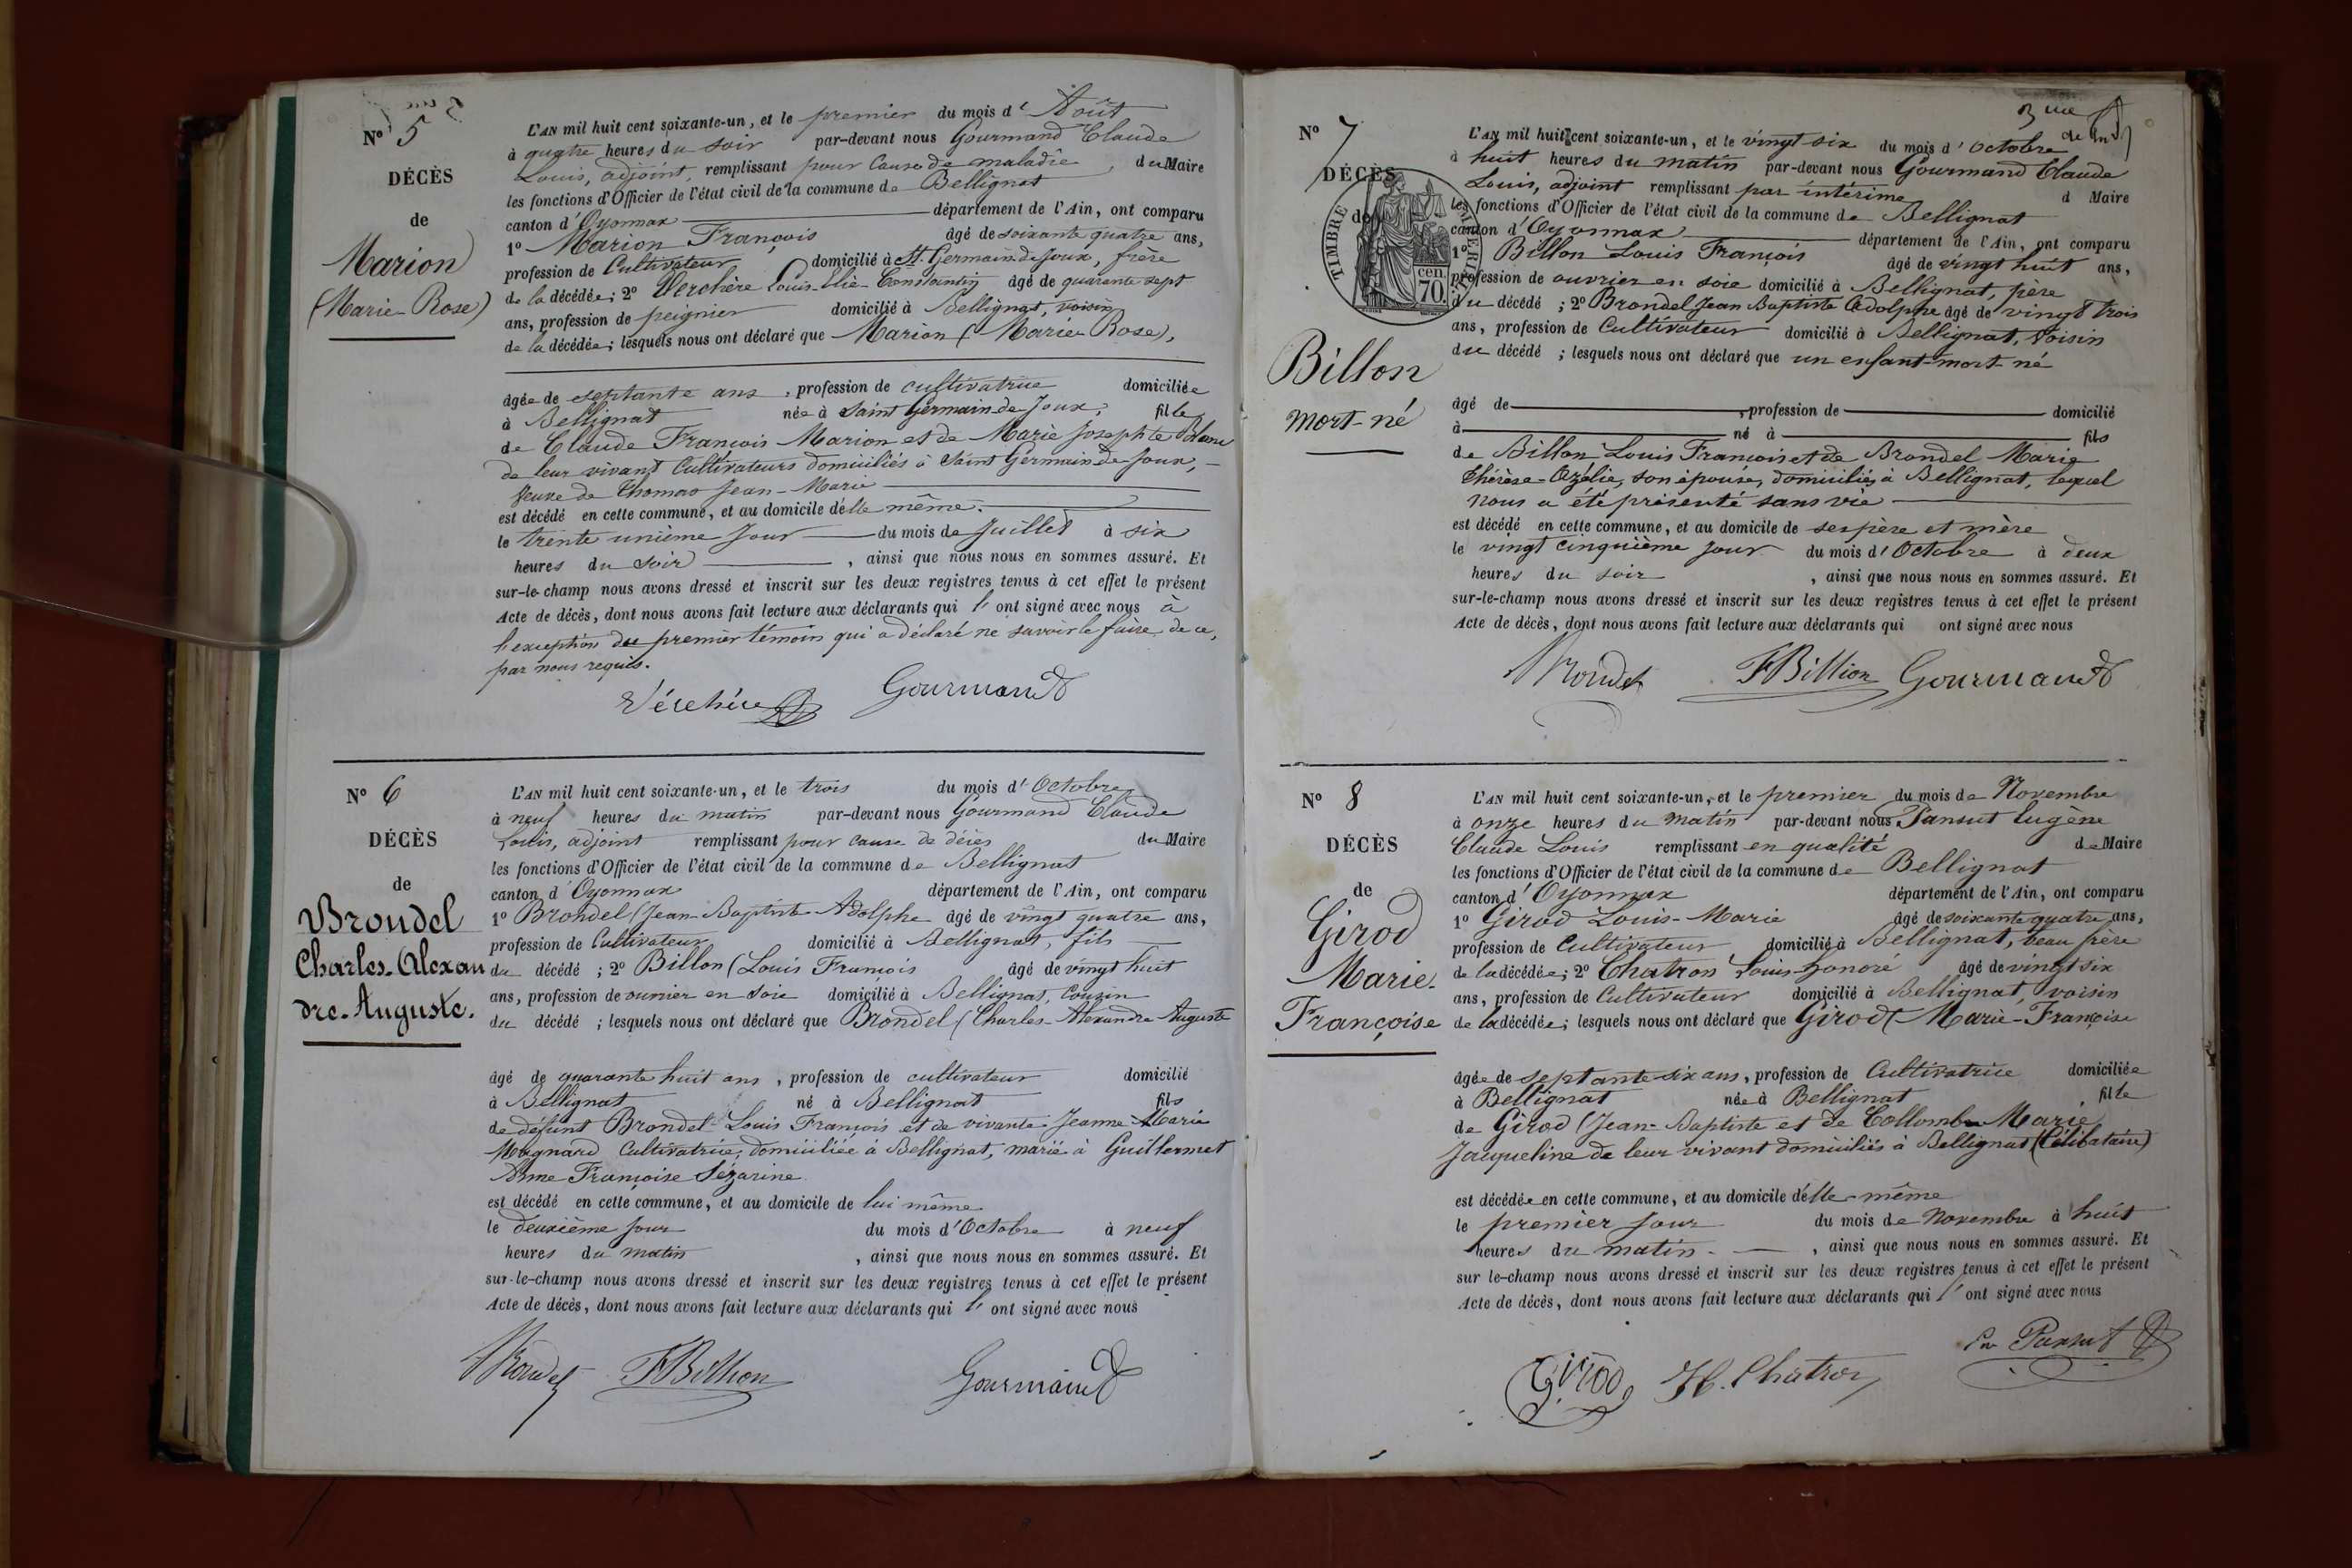 Nº 5
DÉCÈS
de
Marion
(Marie Rose)
L'AN mil huit cent soixante-un, et le premier du mois d'Août
à quatre heures du soir par-devant nous Gourmand Claude
Louis, adjoint, remplissant pour cause de maladie, du Maire
les fonctions d'Officier de l'état civil de la commune de Bellignat
canton d'Oyonnax département de l'Ain, ont comparu
1º Marion François âgé de soixante quatre ans,
profession de Cultivateur domicilié à St. Germain de Joux, frère
de la décédée; 2º Verchère Louis-Elie-Constantin âgé de quarante sept
ans, profession de peignier domicilié à Bellignat, voisin
de la décédée; lesquels nous ont déclaré que Marion (Marie Rose),
âgée de septante ans, profession de cultivatrice domiciliée
à Bellignat née à Saint Germain de Joux, fille
de Claude François Marion et de Marie Josephte Blanc
de leur vivant Cultivateurs domiciliés à Saint Germain de Joux,
Veuve de Thomas Jean-Marie
est décédé en cette commune, et au domicile d'elle même.
le trente unième jour du mois de Juillet à six
heures du soir, ainsi que nous nous en sommes assuré. Et
sur-le-champ nous avons dressé et inscrit sur les deux registres tenus à cet effet le présent
Acte de décès, dont nous avons fait lecture aux déclarants qui l'ont signé avec nous à
l'exception du premier témoin qui a déclaré ne savoir le faire, de ce,
par nous requis.
Vérchère Gourmand
Nº 6
DÉCÈS
de
Brondel
Charles-Alexan
dre-Auguste.
L'AN mil huit cent soixante-un, et le trois du mois d'Octobre
à neuf heures du matin par-devant nous Gourmand Claude
Louis, adjoint remplissant pour cause de décès du Maire
les fonctions d'Officier de l'état civil de la commune de Bellignat
canton d'Oyonnax département de l'Ain, ont comparu
1º Brondel (Jean-Baptiste Adolphe âgé de vingt quatre ans,
profession de Cultivateur domicilié à Bellignat, fils
du décédé; 2º Billon (Louis François âgé de vingt huit
ans, profession de ouvrier en soie domicilié à Bellignat, Cousin
du décédé; lesquels nous ont déclaré que Brondel (Charles-Alexandre Auguste
âgé de quarante huit ans, profession de cultivateur domicilié
à Bellignat né à Bellignat fils
de défunt Brondel Louis François et de vivante Jeanne-Marie
Magnard Cultivatrice, domiciliée à Bellignat, marié à Guillermet
Anne Françoise Sézarine
est décédé en cette commune, et au domicile de lui même
le deuxième jour du mois d'Octobre à neuf
heures du matin, ainsi que nous nous en sommes assuré. Et
sur-le-champ nous avons dressé et inscrit sur les deux registres tenus à cet effet le présent
Acte de décès, dont nous avons fait lecture aux déclarants qui l'ont signé avec nous
Brondel FBillion Gourmand
3me
Nº 7
DÉCÈS
de
TIMBRE IMPERIAL
70 cen.
Billon
mort-né
L'AN mil huit cent soixante-un, et le vingt six du mois d'Octobre
à huit heures du matin par-devant nous Gourmand Claude
Louis, adjoint remplissant par intérime d Maire
les fonctions d'Officier de l'état civil de la commune de Bellignat
canton d'Oyonnax département de l'Ain, ont comparu
1º Billon Louis François âgé de vingt huit ans,
profession de ouvrier en soie domicilié à Bellignat, père
du décédé; 2º Brondel Jean Baptiste Adolphe âgé de vingt trois
ans, profession de Cultivateur domicilié à Bellignat, Voisin
du décédé; lesquels nous ont déclaré que un enfant-mort-né
âgé de, profession de domicilié
à né à fils
de Billon Louis François et de Brondel Marie
Thérèse-Ozélie, son épouse, domiciliés à Bellignat, lequel
nous a été présenté sans vie
est décédé en cette commune, et au domicile de ses père et mère
le vingt cinquième jour du mois d'Octobre à deux
heures du soir, ainsi que nous nous en sommes assuré. Et
sur-le-champ nous avons dressé et inscrit sur les deux registres tenus à cet effet le présent
Acte de décès, dont nous avons fait lecture aux déclarants qui ont signé avec nous
Brondel FBillion Gourmand
Nº 8
DÉCÈS
de
Girod
Marie-
Françoise
L'AN mil huit cent soixante-un, et le premier du mois de Novembre
à onze heures du matin par-devant nous Pansut Eugène
Claude Louis remplissant en qualité de Maire
les fonctions d'Officier de l'état civil de la commune de Bellignat
canton d'Oyonnax département de l'Ain, ont comparu
1º Girod Louis-Marie âgé de soixante quatre ans,
profession de Cultivateur domicilié à Bellignat, beau frère
de la décédée; 2º Chatron Louis-Honoré âgé de vingt six
ans, profession de Cultivateur domicilié à Bellignat, voisin
de la décédée; lesquels nous ont déclaré que Girod (Marie-Françoise
âgée de septante six ans, profession de Cultivatrice domiciliée
à Bellignat née à Bellignat fille
de Girod (Jean-Baptiste et de Collombe Marie
Jaqueline de leur vivant domiciliés à Bellignat (Célibataire)
est décédée en cette commune, et au domicile d'elle-même
le premier jour du mois de Novembre à huit
heures du matin, ainsi que nous nous en sommes assuré. Et
sur le-champ nous avons dressé et inscrit sur les deux registres tenus à cet effet le présent
Acte de décès, dont nous avons fait lecture aux déclarants qui l'ont signé avec nous
Girod H. Chatron Pansut